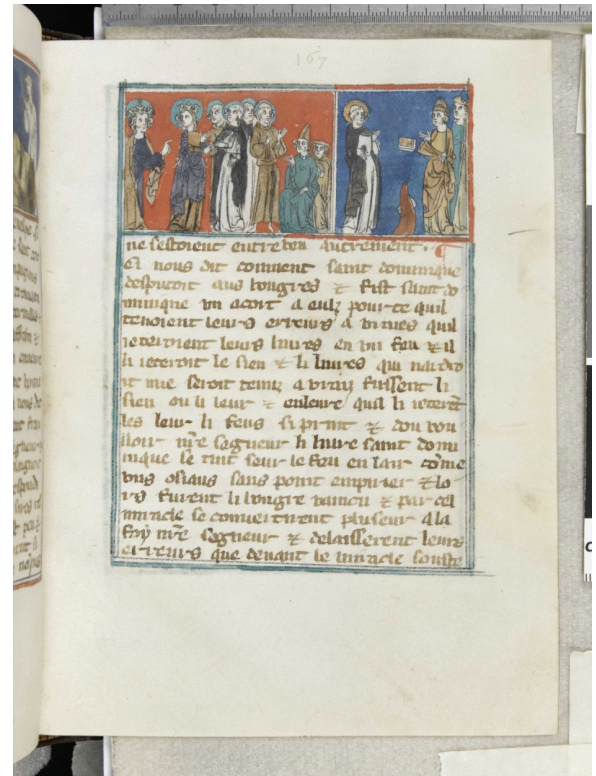 167
ne sestoient entre ben autrement.
Et nous dit coment saint dominique
desputoit aus bougres & fist saint do
minique un acort a eulz pour ce quil
tenoient leurs erreurs a vraies quil
ieteroient leurs liures en un feu & il
li ieteroit le sien & li liures qui nardro
it mie seroit tenuz a vray fussent li
sien ou li leur & quil li ieterent
les leur li feus si print & dou vou
loir nre segneur li liure saint domi
nique se tint seur le feu en lair come
uns osiaus sans point empirier & lo
rs furent li bougre vaincu & par cel
miracle se conuertirent pluseur a la
foy nre segneur & delaisserent leurs
erreurs que deuant le miracle